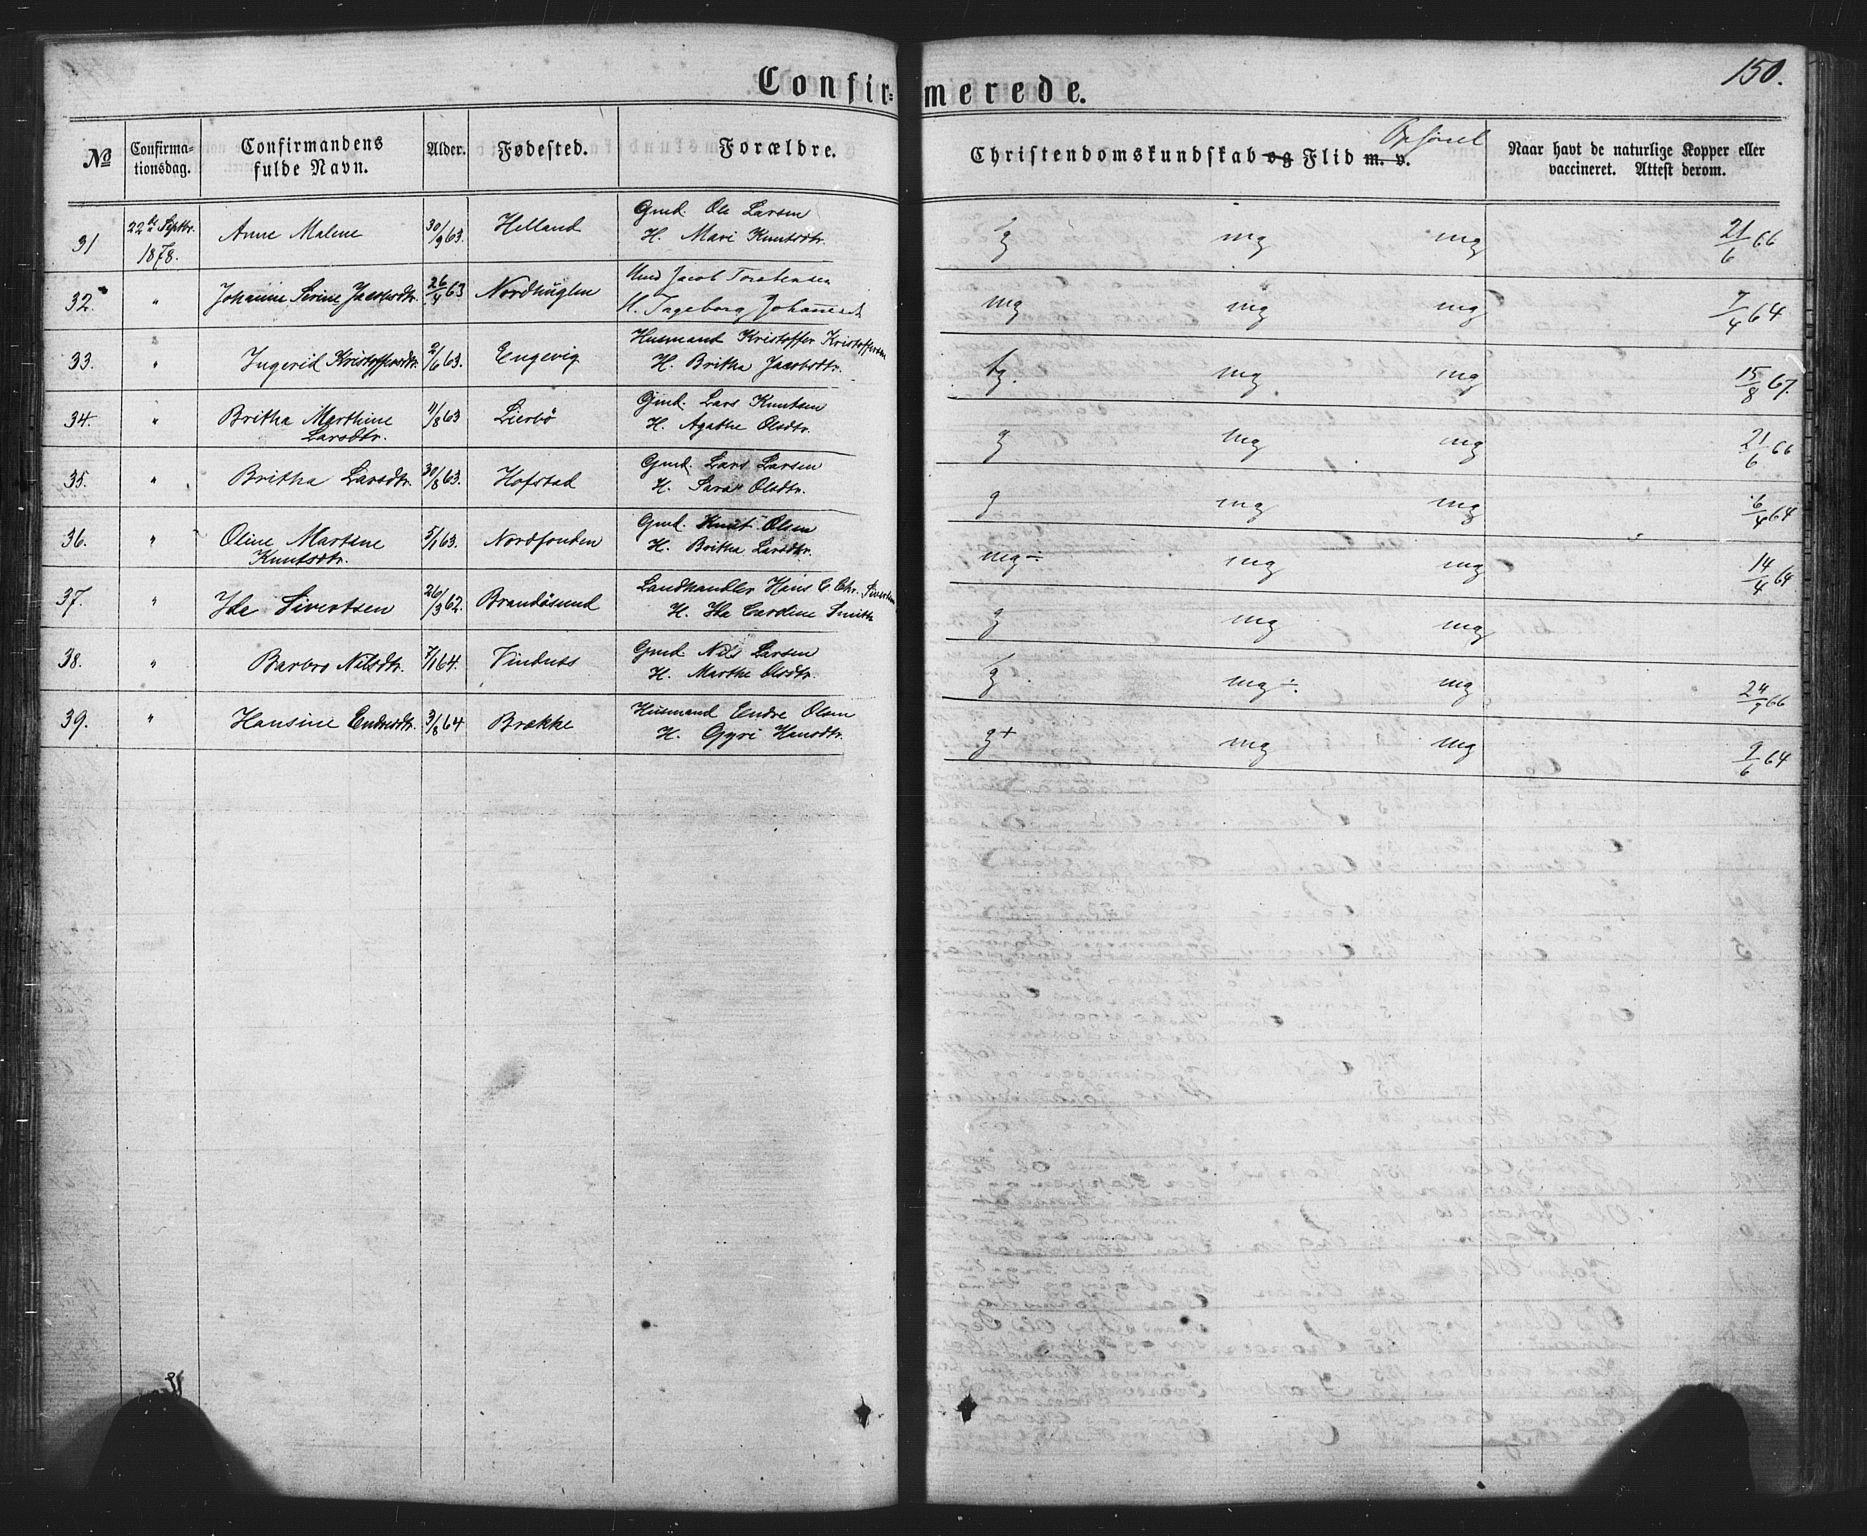 Confir-merede.
150.
No
Confirma-
tionsdag.
Confirmandens
fulde Navn.
Alder.
Fødested.
Forældre.
Christendomskundskab og Flid m. v. Opførsel
Naar havt de naturlige Kopper eller
vaccineret. Attest derom.
31 22de Septbr. 1878. Anne Malene 30/9 63. Helland Gmd. Ole Larsen
H. Mari Knutsdtr. g mg mg 21/6 66
32. " Johanne Serine Jacobsdtr. 26/4 63 Nordhuglen Jacob Torstensen
H. Ingeborg Johannesd mg mg mg 7/4 64
33. " Ingerid Kristoffersdtr. 2/6 63. Engevig Husmand Kristoffer Kristoffersen
H. Britha Jacobsdtr. tg. mg mg 15/8 67.
34. " Britha Marthine
Larsdtr. 11/8 63 Lierbø Gmd. Lars Knutsen
H. Agathe Olsdtr. g mg mg 21/6 66
35. " Britha Larsdtr. 30/8 63. Hofstad Gmd. Lars Larsen
H. Sara Olsdtr. g mg mg 6/4 64
36. " Oline Martine
Knutsdtr. 5/1 63. Nordfonden Gmd. Knut Olsen
H. Britha Larsdtr. mg÷ mg mg 14/4 64
37. " Ida Sivertsen 26/3 62. Brandøsund Landhandler Hans C. Chr. Sivertsen
H. Ida Caroline Smith g mg mg
38. " Barbro Nilsdtr. 7/1 64. Vindnes Gmd. Nils Larsen
H. Marthe Olsdtr. g mg÷. mg 24/7 66
39. " Hansine Endresdtr. 3/8 64 Brække Husmand Endre Olsen
H. Gyri Hansdtr. g+ mg mg 9/6 64